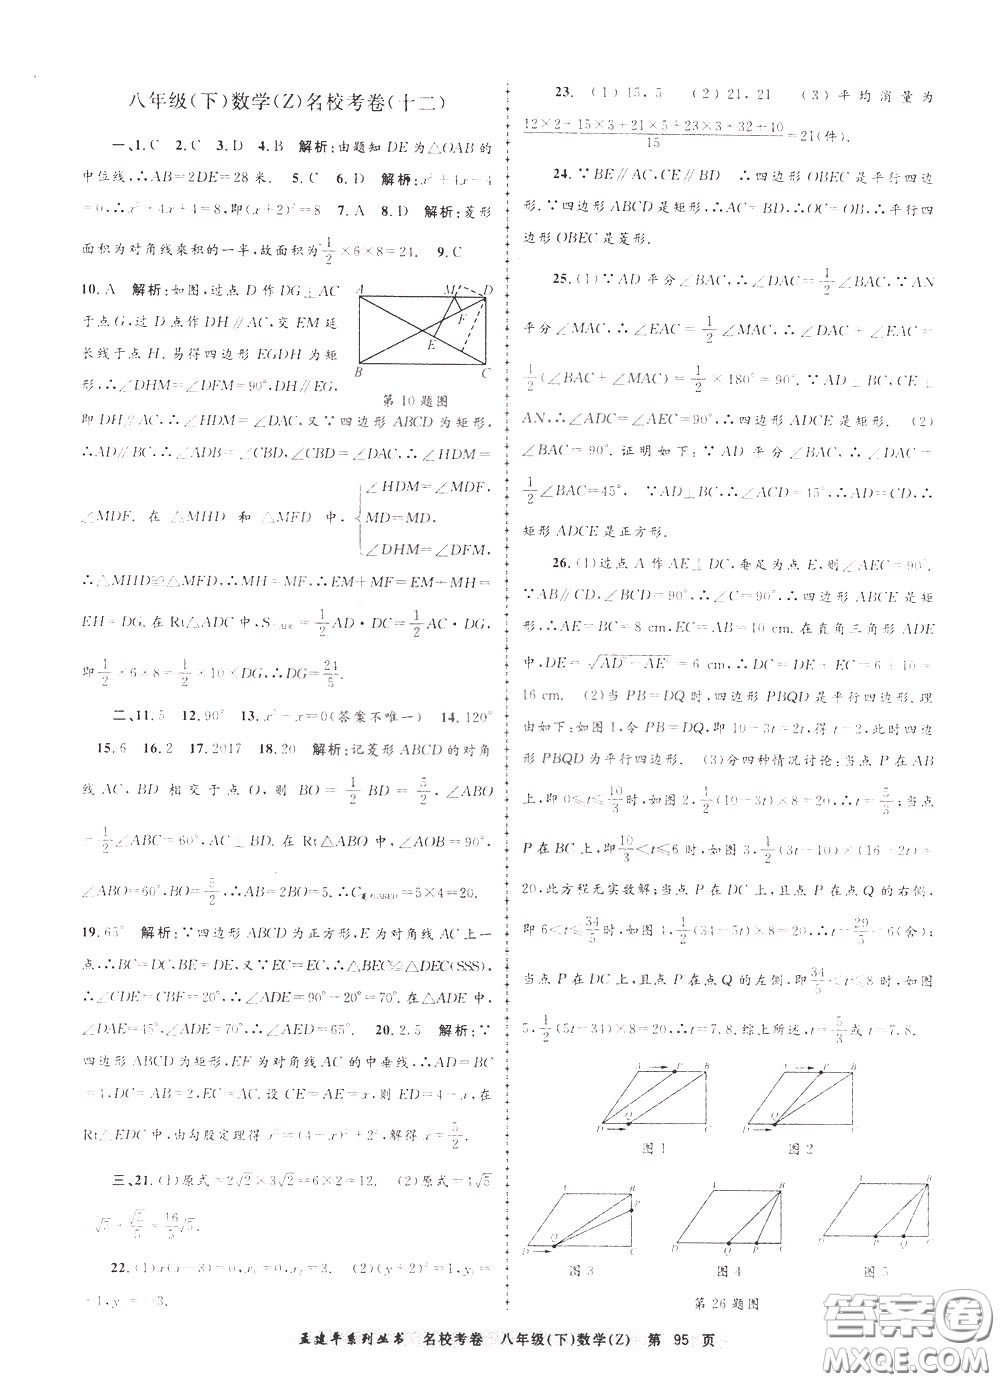 八年级(下)数学(Z)名校考卷(十二)
一、1.C 2.C 3.D 4.B 解析:由题知DE为△OAB的
中位线,∴AB=2DE=28米. 5.C 6.D 解析:x²+4x-4
=0,∴x²+4x+4=8,即(x+2)²=8 7.A 8.D 解析:菱形
面积为对角线乘积的一半,故面积为1/2×6×8=24. 9.C
10.A 解析:如图,过点D作DG⊥AC
于点G,过D点作DH∥AC,交EM延
长线于点H.易得四边形EGDH为矩
形,∴∠DHM=∠DFM=90°,DH∥EG,
A M D
F
E
B C
第10题图
即DH∥AC,∴∠HDM=∠DAC,又∵四边形ABCD为矩形,
∴AD∥BC,∴∠ADB=∠CBD,∠CBD=∠DAC,∴∠HDM=
∠MDF.在△MHD和△MFD中,{∠HDM=∠MDF,
MD=MD,
∠DHM=∠DFM,
∴△MHD≌△MFD,∴MH=MF,∴EM+MF=EM+MH=
EH=DG.在Rt△ADC中,S△ADC=1/2AD·DC=1/2AC·DG,
即1/2×6×8=1/2×10×DG,∴DG=24/5.
二、11.5 12.90° 13.x²-x=0(答案不唯一) 14.120°
15.6 16.2 17.2017 18.20 解析:记菱形ABCD的对角
线AC,BD相交于点O,则BO=1/2BD=5/2,∠ABO
=1/2∠ABC=60°,AC⊥BD.在Rt△ABO中,∠AOB=90°,
∠ABO=60°,BO=5/2,∴AB=2BO=5,∴C菱形ABCD=5×4=20.
19.65° 解析:∵四边形ABCD为正方形,E为对角线AC上一
点,∴BC=DC,BE=DE,又∵EC=EC,∴△BEC≌△DEC(SSS),
∴∠CDE=∠CBF=20°,∴∠ADE=90°-20°=70°.在△ADE中,
∠DAE=45°,∠ADE=70°,∴∠AED=65°. 20.2.5 解析:∵
四边形ABCD为矩形,EF为对角线AC的中垂线,∴AD=BC
=4,DC=AB=2,EC=AC.设CE=AE=x,则ED=4-x,在
Rt△EDC中,由勾股定理得x²=(4-x)²+2²,解得x=5/2.
三、21.(1)原式=2√2×3√2=6×2=12. (2)原式=4√5
-√5+√5/5=16/5√5.
22.(1)x(x-3)=0,x₁=0,x₂=3. (2)(y+2)²=1,y₁=
-1,y₂=-3.
23. (1)15,5 (2)21,21 (3)平均消量为
12×2+15×3+21×5+23×3+32+10/15=21(件).
24.∵BE∥AC,CE∥BD ∴四边形OBEC是平行四边
形.又∵四边形ABCD是矩形,∴AC=BD,∴OC=OB,∴平行四
边形OBEC是菱形.
25.(1)∵AD平分∠BAC,∴∠DAC=1/2∠BAC,∵AN
平分∠MAC,∴∠EAC=1/2∠MAC,∴∠DAC+∠EAC=
1/2(∠BAC+∠MAC)=1/2×180°=90°.∵AD⊥BC,CE⊥
AN,∴∠ADC=∠AEC=90°,∴四边形ADCE是矩形. (2)
∠BAC=90°.证明如下:∵AD平分∠BAC,∴∠DAC=
1/2∠BAC=45°. ∵AD⊥BC,∴∠ACD=45°,∴AD=CD,∴
矩形ADCE是正方形.
26.(1)过点A作AE⊥DC,垂足为点E,则∠AEC=90°.
∵AB∥CD,∠BCD=90°,∴∠ABC=90°,∴四边形ABCE是矩
形,∴AE=BC=8 cm,EC=AB=10 cm.在直角三角形ADE
中,DE=√AD²-AE²=6 cm,∴DC=DE+EC=6+10=
16 cm. (2)当PB=DQ时,四边形PBQD是平行四边形.理
由如下:如图1,令PB=DQ,即10-3t=2t,得t=2,此时四边
形PBQD为平行四边形. (3)分四种情况讨论:当点P在AB
上,即0≤t≤10/3时,如图2,1/2(10-3t)×8=20,∴t=5/3;当点
P在BC上,即10/3<t≤6时,如图3,1/2(3t-10)×(16-2t)=
20,此方程无实数解;当点P在DC上,且点P在点Q的右侧,
即6<t≤34/5时,如图4,1/2(34-5t)×8=20,∴t=29/5<6(舍);
当点P在DC上,且点P在点Q的左侧,即34/5<t≤8时,如图
5,1/2(5t-34)×8=20,∴t=7.8.综上所述,t=5/3或t=7.8.
A P B
D Q C
图1
A P B
D Q C
图2
B
P
D Q C
图3
B
D Q P C
图4
B
D P Q C
图5
第26题图
孟建平系列丛书 名校考卷 八年级(下)数学(Z) 第 95 页
答案圈
MXQE.COM